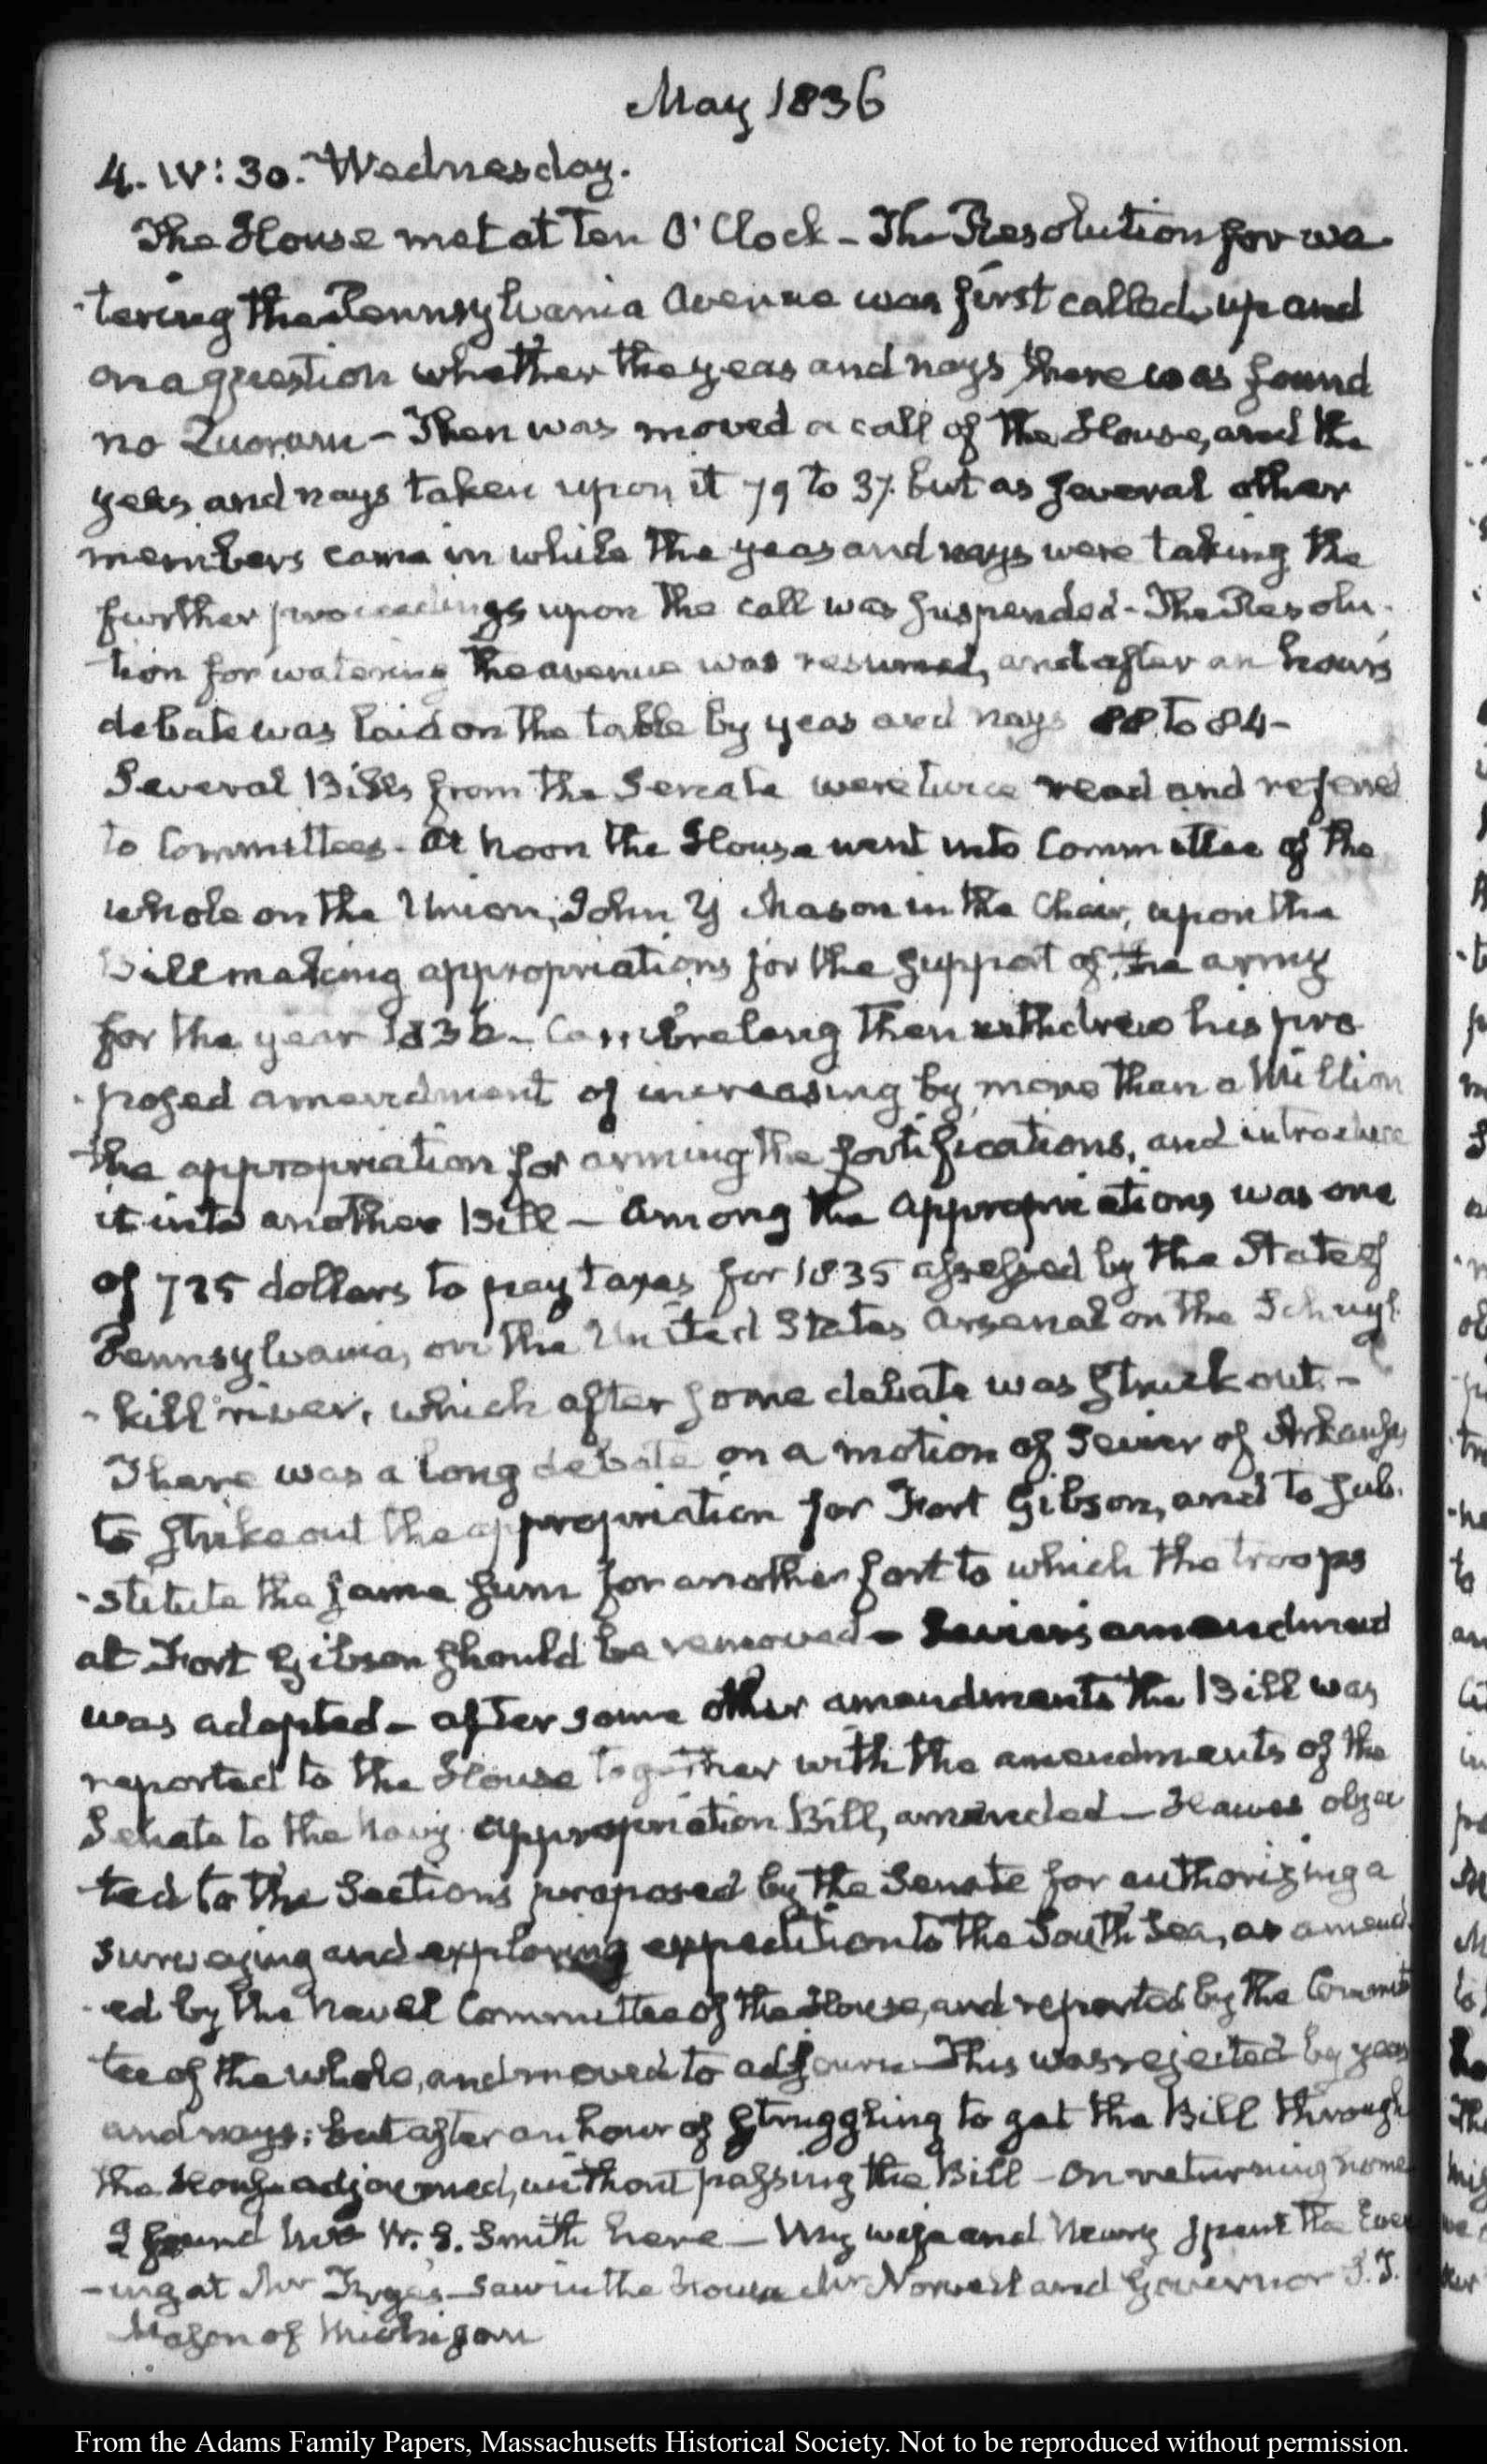 May 1836
4. IV: 30. Wednesday.
The House met at Ten O'Clock – The Resolution for wa-
-tering the Pennsylvania Avenue was first called up and
on a question whether the yeas and nays there was found
no Quorum – Then was moved a call of the House, and the
yeas and nays taken upon it 79 to 37. but as several other
members came in while the yeas and nays were taking the
further proceedings upon the call was suspended – The Resolu-
tion for watering the avenue was resumed, and after an hour's
debate was laid on the table by yeas and nays 88 to 84 –
Several Bills from the Senate were twice read and referred
to Committees – At noon the House went into Committee of the
whole on the Union, John Y Mason in the Chair, upon the
Bill making appropriations for the support of the army
for the year 1836 – Cambreleng then withdrew his pro
-posed amendment of increasing by more than a Million
the appropriation for arming the fortifications, and introduce
it into another Bill – Among the appropriations was one
of 725 dollars to pay taxes for 1835 assessed by the State of
Pennsylvania, on the United States Arsenal on the Schuyl-
-kill river, which after some debate was struck out. –
There was a long debate on a motion of Sevier of Arkansas
to strike out the appropriation for Fort Gibson, and to sub-
-stitute the same sum for another fort to which the troops
at Fort Gibson should be removed – Sevier's amendment
was adopted – after some other amendments the Bill was
reported to the House together with the amendments of the
Senate to the Navy appropriation Bill, amended – Hawes objec
ted to the Sections proposed by the Senate for authorizing a
surveying and exploring expedition to the South Sea, as amend-
-ed by the Naval Committee of the House, and reported by the Commit
tee of the whole, and moved to adjourn – This was rejected by yeas
and nays; but after an hour of struggling to get the Bill through
the House adjourned, without passing the Bill – On returning home
I found Mrs W. S. Smith here – My wife and Mary spent the Even
-ing at Mr Frye's – Saw in the house Mr Norvell and Governor S. T.
Mason of Michigan
From the Adams Family Papers, Massachusetts Historical Society. Not to be reproduced without permission.